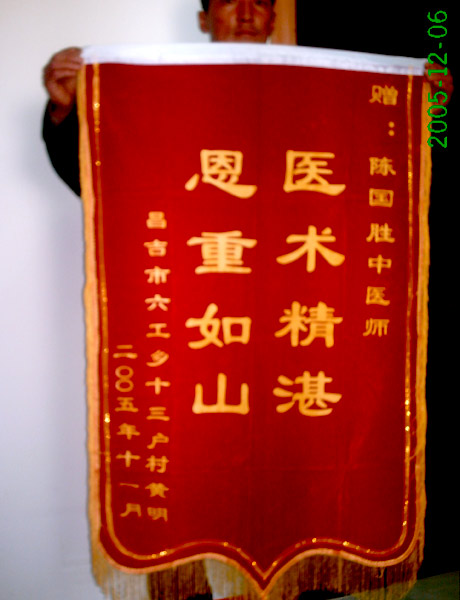 赠：陈国胜中医师
医术精湛
恩重如山
昌吉市六工乡十三户村黄明
二〇〇五年十一月
2005-12-06